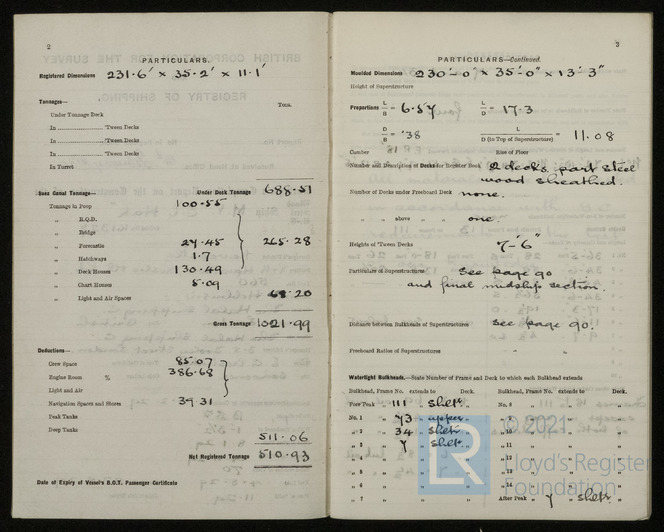 2
PARTICULARS.
Registered Dimensions 231·6' × 35·2' × 11·1'
Tonnages— Tons.
Under Tonnage Deck
In .................... 'Tween Decks
In .................... 'Tween Decks
In .................... 'Tween Decks
In Turret
Suez Canal Tonnage— Under Deck Tonnage 688·51
Tonnage in Poop 100·55
„ R.Q.D.
„ Bridge
„ Forecastle 27·45 265·28
„ Hatchways 1·7
„ Deck Houses 130·49
„ Chart Houses 5·09
„ Light and Air Spaces 68·20
Gross Tonnage 1021·99
Deductions—
Crew Space 85·07
Engine Room % 386·68
Light and Air
Navigation Spaces and Stores 39·31
Peak Tanks
Deep Tanks
511·06
Net Registered Tonnage 510·93
Date of Expiry of Vessel's B.O.T. Passenger Certificate
3
PARTICULARS—Continued.
Moulded Dimensions 230'-0" × 35'-0" × 13' 3"
Height of Superstructure
Proportions L/B = 6·57 L/D = 17·3
D/B = ·38 L/D (to Top of Superstructure) = 11·08
Camber Rise of Floor
Number and Description of Decks for Register Book 2 decks, part steel
wood sheathed.
Number of Decks under Freeboard Deck none.
„ „ above „ „ one
Heights of 'Tween Decks 7'-6"
Particulars of Superstructures see page 90
and final midship section.
Distance between Bulkheads of Superstructures see page 90.
Freeboard Ratios of Superstructures „ „
Watertight Bulkheads.—State Number of Frame and Deck to which each Bulkhead extends
Bulkhead, Frame No. extends to Deck. Bulkhead, Frame No. extends to Deck.
Fore Peak „ 111 „ shelt. No. 8 „ „ „
No. 1 „ 73 „ upper „ 9 „ „ „
„ 2 „ 34 „ shelt. „ 10 „ „ „
„ 3 „ 7 „ shelt. „ 11 „ „ „
„ 4 „ „ „ 12 „ „ „
„ 5
„ 6
„ 7 „ „ After Peak „ 7 „ shelt. „
© 2021
LR
Lloyd's Register
Foundation